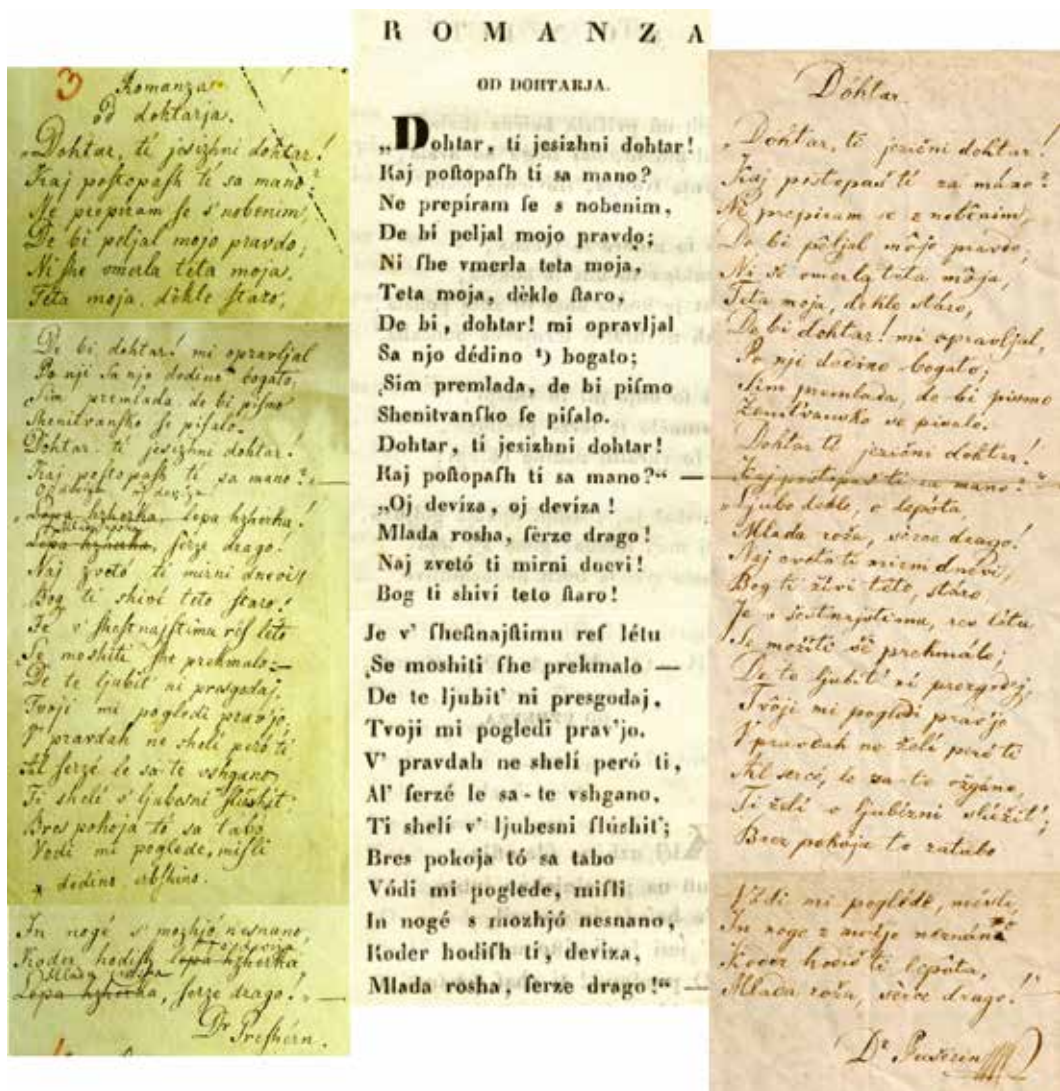 3
Romanza
od dohtarja.
„Dohtar, tí jesizhni dohtar!
Kaj poſtopaſh tí sa mano?
Ne prepiram ſe s' nobenim,
De bi peljal mojo pravdo;
Ni ſhe vmerla teta moja,
Teta moja, dèkle ſtaro,
De bi dohtar! mi opravljal
Po nji Sa njo dedino bogato;
Sim premlada, de bi piſmo
Shenitvanſko ſe piſalo.
Dohtar, tí jesizhni dohtar!
Kaj poſtopaſh tí sa mano? —
Oj deviza, oj deviza!
„Lepa hzherka, lepa hzherka!
Mlada rosha
Lepa hzherka, ſerze drago!
Naj zvetó ti mirni dnevi!
Bog ti shiví teto ſtaro!
Je v' ſheſtnajſtimu reſ leto
Se moshiti ſhe prekmalo —
De te ljubit' ni presgodaj,
Tvoji mi pogledi prav'jo,
V' pravdah ne shelí peró ti
Al ſerzé le sa-te vshgano,
Ti shelí v' ljubesni ſlúshit'
Bres pokoja tó sa tabo
Vodi mi poglede, miſli
x dedino erbſhino.
In nogé s' mozhjó nesnano,
Koder hodiſh lepa hzherka
Mlada
Lepa hzherka, ſerze drago! —
Dr Preſhérn.
ROMANZA
OD DOHTARJA.
„Dohtar, tí jesizhni dohtar!
Kaj poſtopaſh ti sa mano?
Ne prepíram ſe s nobenim,
De bi peljal mojo pravdo;
Ni ſhe vmerla teta moja,
Teta moja, dèkle ſtaro,
De bi, dohtar! mi opravljal
Sa njo dédino ¹) bogato;
Sim premlada, de bi piſmo
Shenitvanſko ſe piſalo.
Dohtar, tí jesizhni dohtar!
Kaj poſtopaſh ti sa mano?“ —
„Oj devíza, oj devíza!
Mlada rosha, ſerze drago!
Naj zvetó ti mirni dnevi!
Bog ti shiví teto ſtaro!
Je v' ſheſtnajſtimu reſ létu
Se moshiti ſhe prekmalo —
De te ljubit' ni presgodaj,
Tvoji mi pogledi prav'jo.
V' pravdah ne shelí peró ti,
Al' ſerzé le sa-te vshgano,
Ti shelí v' ljubesni ſlúshit';
Bres pokoja tó sa tabo
Vódi mi poglede, miſli
In nogé s mozhjó nesnano,
Koder hodiſh ti, devíza,
Mlada rosha, ſerze drago!“ —
Dóhtar.
„Dohtar, tí jezični dohtar!
Kaj postopaš tí za máno?
Ne prepiram se z nobčnim,
De bi pêljal môjo pravdo;
Ni še vmerla teta môja,
Teta moja, dekle stáro,
De bi dohtar! mi opravljal,
Po nji dedino bogato;
Sim premlada, de bi pismo
Ženitvansko se pisalo.
Dohtar tí jezični dohtar!
Kaj postopaš tí za mano?“
„Ljubo dekle, o lepóta
Mlada roža, sérce drago!
Naj cveto ti mirni dnévi,
Bog ti živi teto, stáro,
Je v šestnajstimu, res létu
Se možiti še prekmálo;
De te ljubit' ni prezgodej,
Tvôji mi pogledi prav'jo
V pravdah ne želí peró ti
Al sercé, le za-te vžgáno,
Ti želí v ljubézni slúžit';
Brez pokoja to za tabo
Vôdi mi poglede, misli,
In noge z močjo neznáno
Koder hodiš ti lepóta,
Mlada roža, sérce drago!“ —
Dr Prešérin